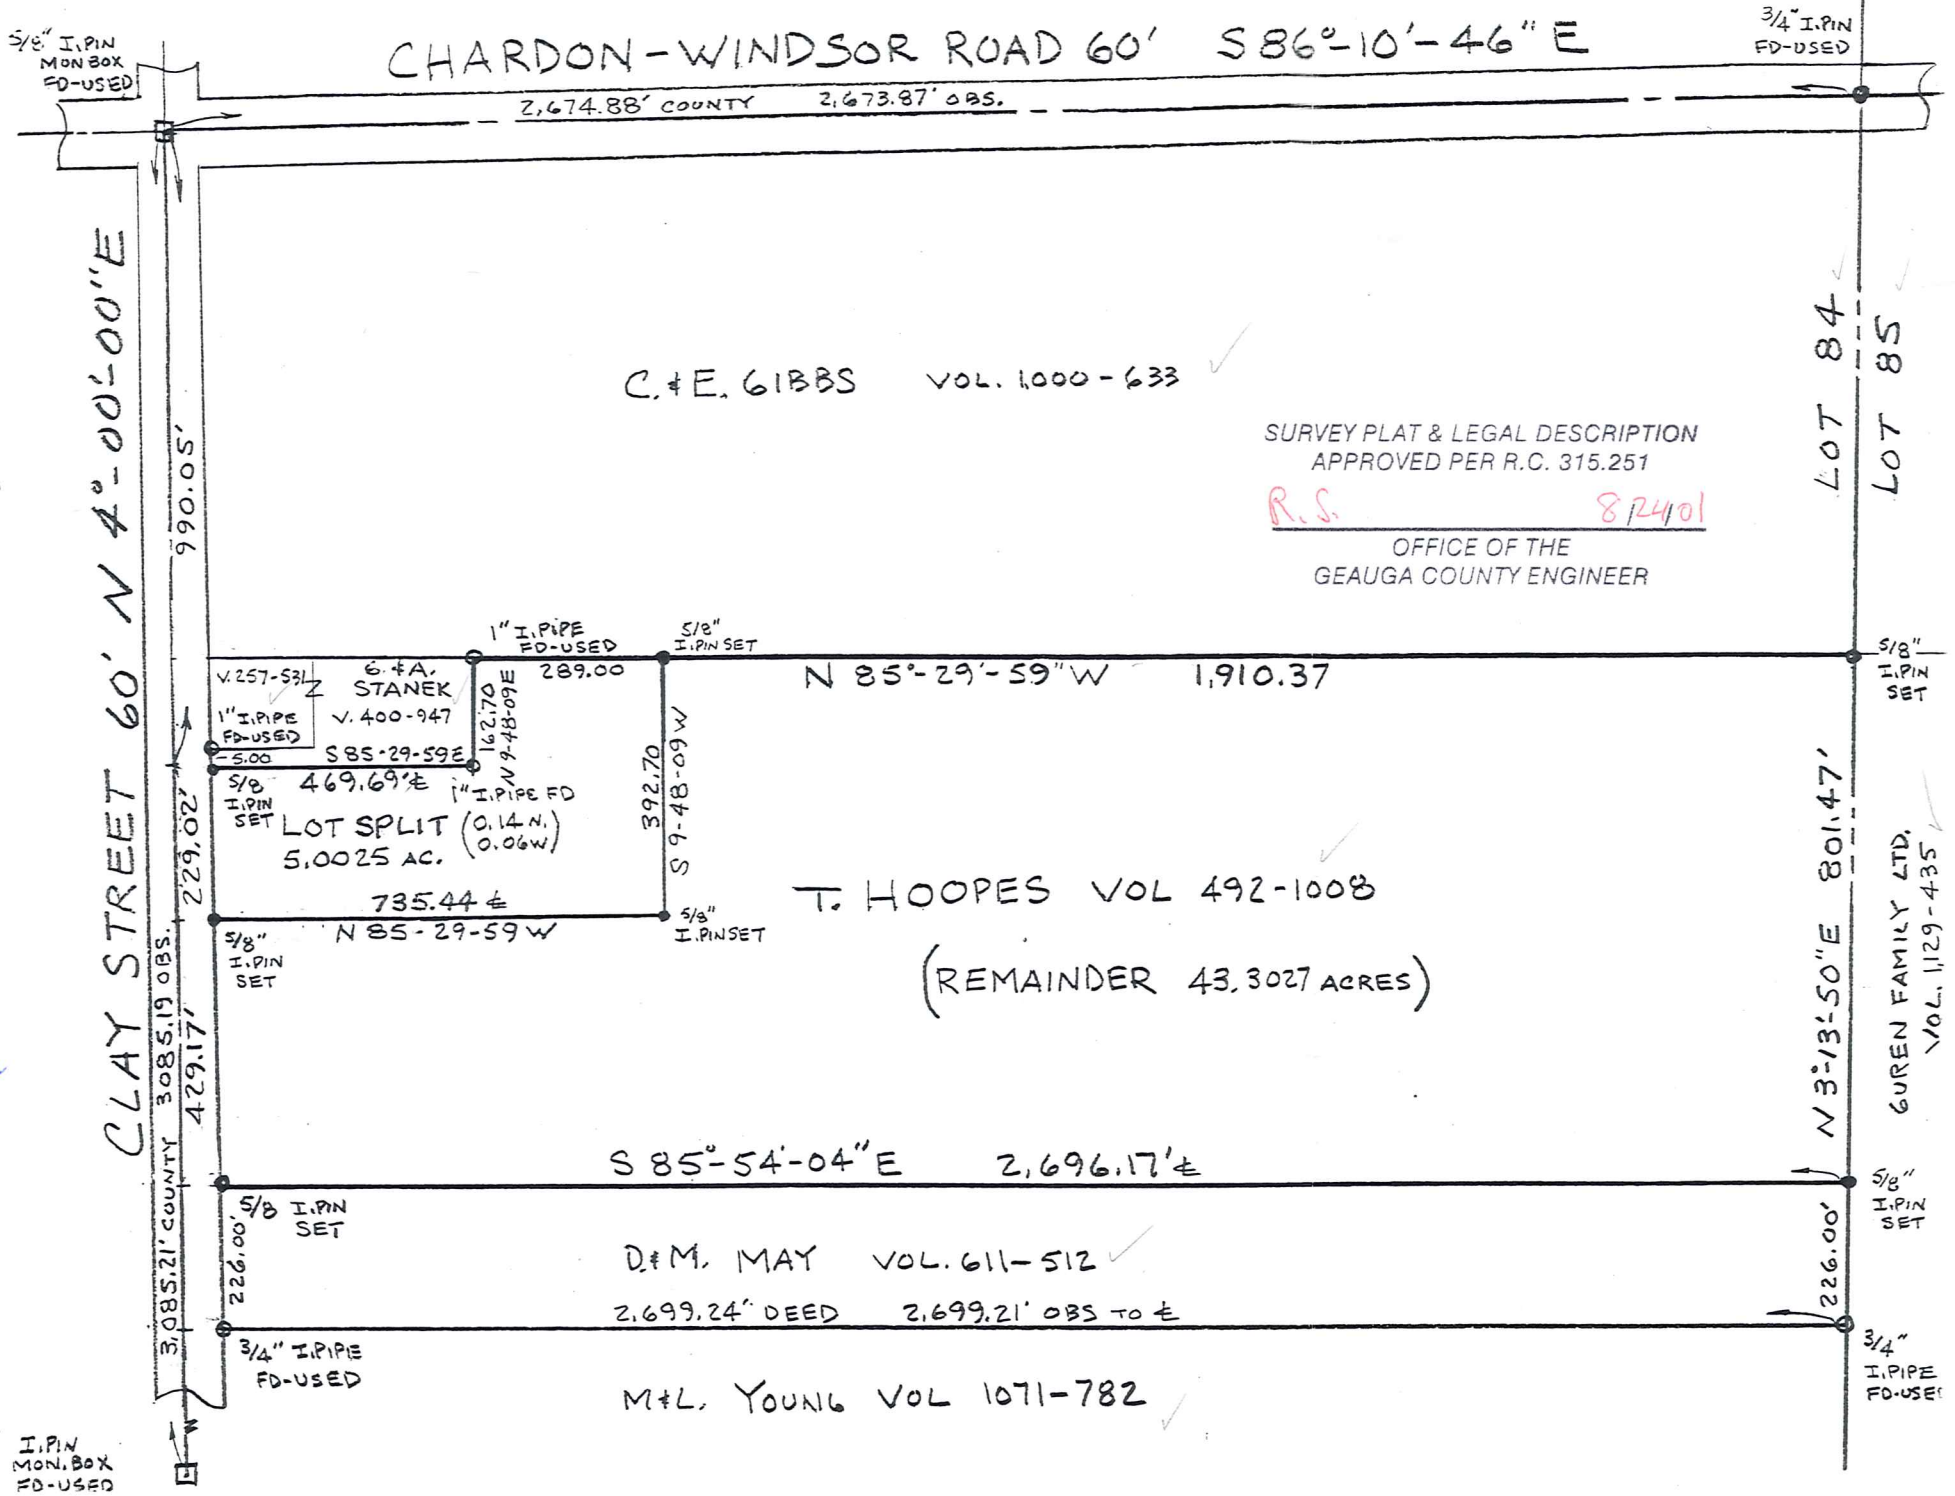 5/8" I.PIN
MON BOX
FD-USED
CHARDON-WINDSOR ROAD 60' S 86°-10'-46" E
3/4" I.PIN
FD-USED
2,674.88' COUNTY 2,673.87' OBS.
CLAY STREET 60' N 4°-00'-00" E
990.05'
C. & E. GIBBS VOL. 1,000-633
SURVEY PLAT & LEGAL DESCRIPTION
APPROVED PER R.C. 315.251
R.S. 8/24/01
OFFICE OF THE
GEAUGA COUNTY ENGINEER
LOT 84
LOT 85
1" I.PIPE
FD-USED
289.00
5/8"
I.PIN SET
N 85°-29'-59" W 1,910.37
5/8"
I.PIN
SET
V. 257-531
G. & A.
STANEK
V. 400-947
1" I.PIPE
FD-USED
5.00
S 85-29-59 E
469.69' ℄
162.70
N 9-48-09E
5/8
I.PIN
SET
1" I.PIPE FD
(0.14 N.
0.06W)
LOT SPLIT
5.0025 AC.
392.70
S 9-48-09 W
229.02'
735.44 ℄
N 85-29-59 W
5/8"
I.PIN SET
5/8"
I.PIN
SET
T. HOOPES VOL 492-1008
(REMAINDER 43.3027 ACRES)
N 3°-13'-50" E 801.47'
GUREN FAMILY LTD.
VOL. 1,129-435
3,085.21' COUNTY 3085.19 OBS.
429.17'
S 85°-54'-04" E 2,696.17' ℄
5/8 I.PIN
SET
5/8"
I.PIN
SET
226.00'
226.00'
D.& M. MAY VOL. 611-512
2,699.24' DEED 2,699.21' OBS TO ℄
3/4" I.PIPE
FD-USED
3/4"
I.PIPE
FD-USE
M & L. YOUNG VOL 1071-782
I.PIN
MON. BOX
FD-USED